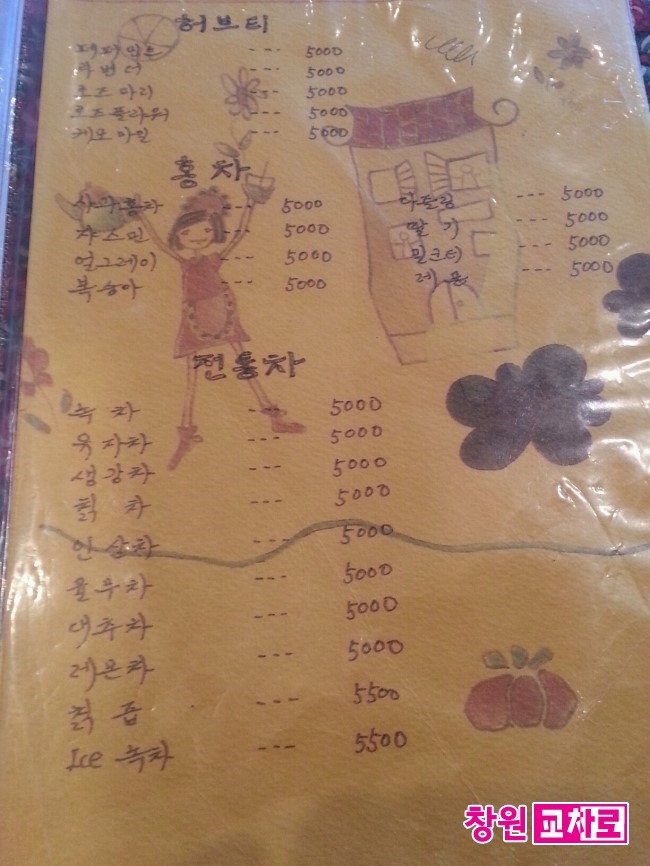 허브티
페퍼민트 --- 5000
라벤더 --- 5000
로즈마리 --- 5000
로즈플라워 --- 5000
케모마일 --- 5000
홍차
사과홍차 --- 5000
쟈스민 --- 5000
얼그레이 --- 5000
복숭아 --- 5000
다즐링 --- 5000
딸기 --- 5000
밀크티 --- 5000
레몬 --- 5000
전통차
녹차 --- 5000
유자차 --- 5000
생강차 --- 5000
칡차 --- 5000
인삼차 --- 5000
율무차 --- 5000
대추차 --- 5000
레몬차 --- 5000
칡즙 --- 5500
Ice 녹차 --- 5500
창원 교차로